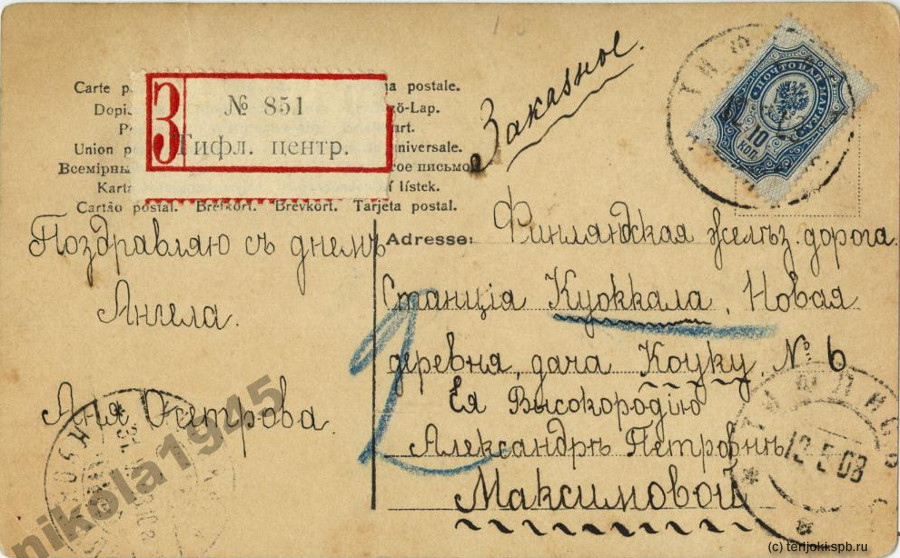 Заказное.
Carte p
na postale.
Dopis
ző-Lap.
Union p
universale.
Всемірны
тое письмо
Karta
í lístek.
Cartão postal. Brefkort. Brevkort. Tarjeta postal.
З
№ 851
Тифл. центр.
ПОЧТОВАЯ МАРКА
10
КОП
Поздравляю съ днемъ
Ангела.
Аня Осетрова.
Adresse:
Финляндская желѣз. дорога.
Станція Куоккала, Новая
деревня, дача Коуку, № 6
Ея Высокородію
Александрѣ Петровнѣ
Максимовой
2
ТИФЛИСЪ
12 5 08
nikola1945
(c) terijoki.spb.ru